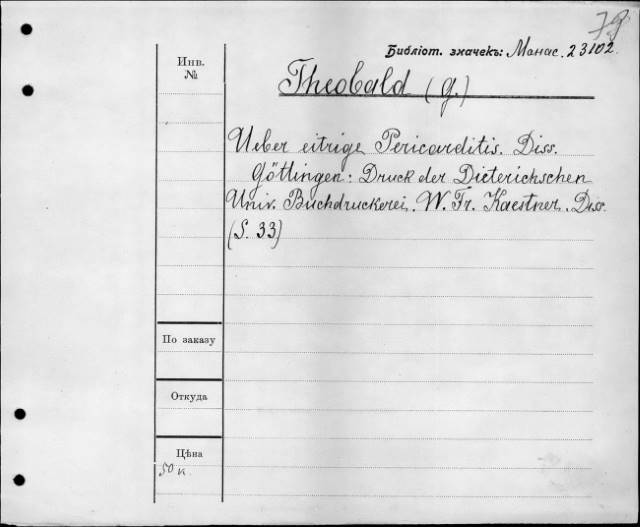 79
Библіот. значекъ: Манас. 23102.
Инв.
№
Theobald (G.)
Ueber eitrige Pericarditis. Diss.
Göttingen: Druck der Dieterichschen
Univ. Buchdruckerei. W. Fr. Kaestner. Diss.
(S. 33)
По заказу
Откуда
Цѣна
50 к.